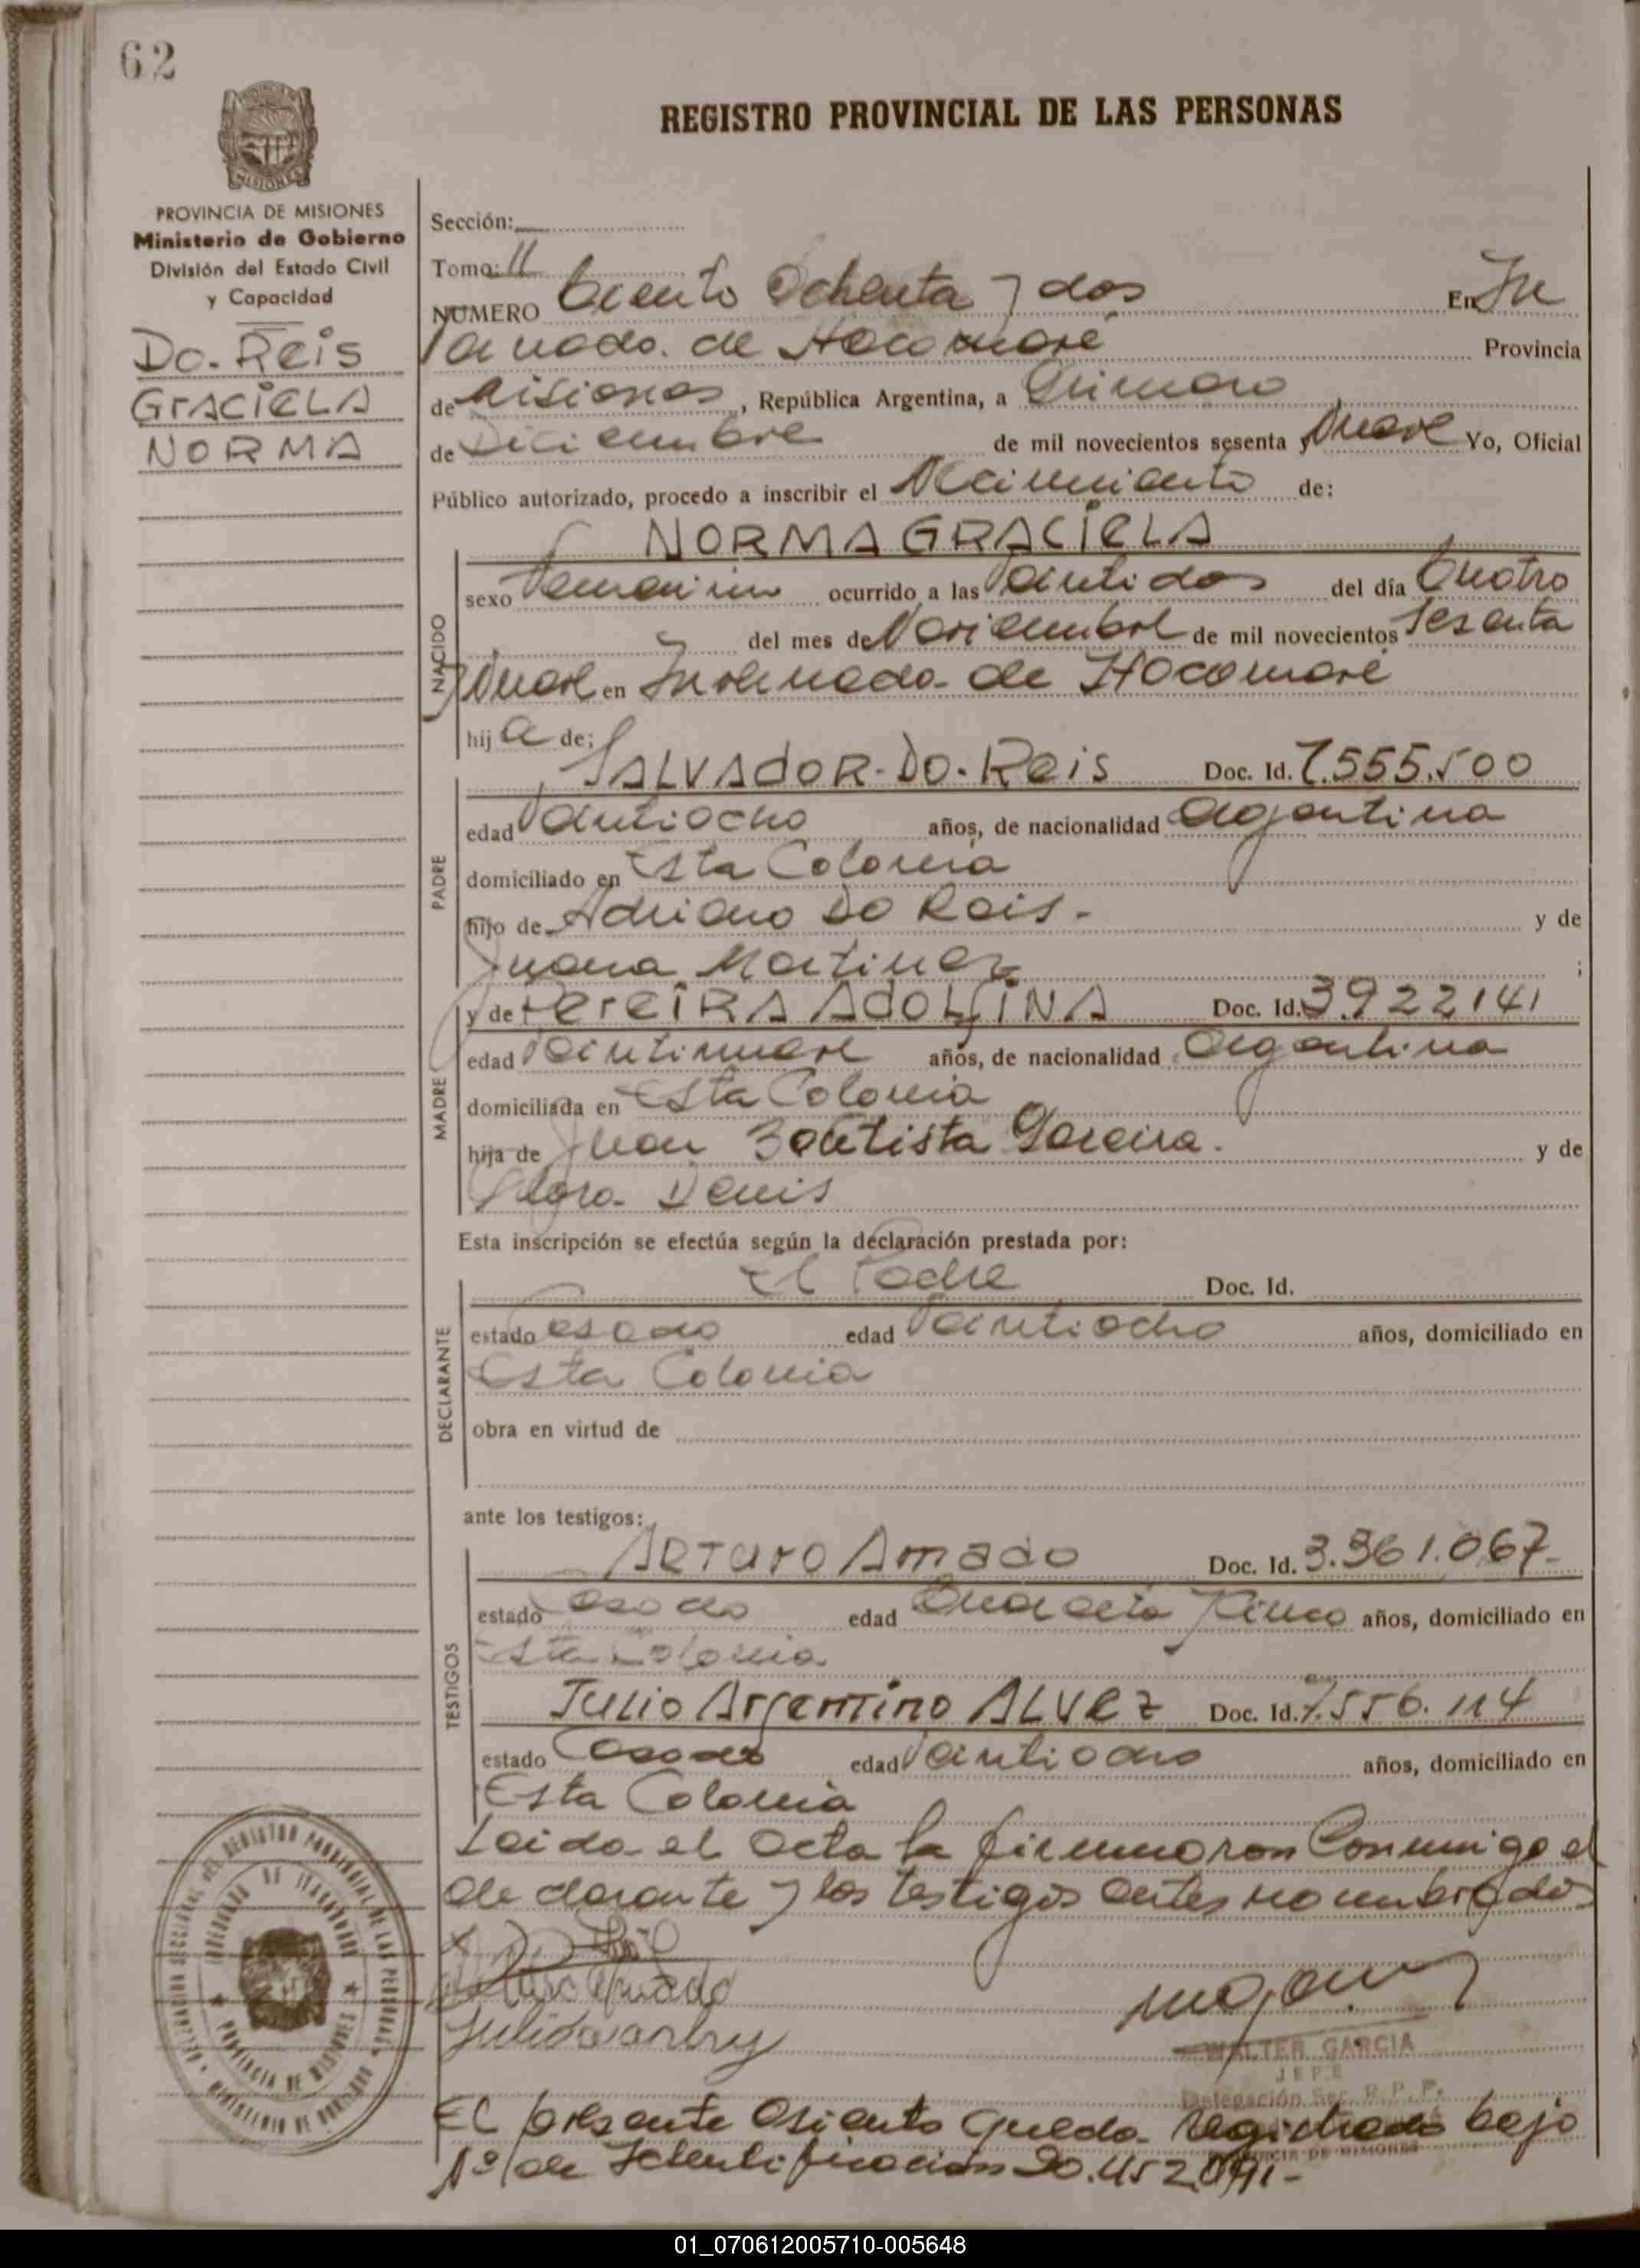 62
REGISTRO PROVINCIAL DE LAS PERSONAS
PROVINCIA DE MISIONES
Ministerio de Gobierno
División del Estado Civil
y Capacidad
Do. Reis
GrACiELA
NORMA
Sección:
Tomo: II
NUMERO Ciento Ochenta y dos En In
vernada de Itacaruaré Provincia
de Misiones, República Argentina, a Primero
de Diciembre de mil novecientos sesenta y Nueve Yo, Oficial
Público autorizado, procedo a inscribir el Nacimiento de:
NORMA GRACiELA
NACIDO
sexo Femenino ocurrido a las Veintidos del día Cuatro
del mes de Noviembre de mil novecientos Sesenta
y Nueve en Invernada de Itacaruaré
hija de:
SALVAdOR-DO-Reis Doc. Id. 7.555.500
PADRE
edad Veintiocho años, de nacionalidad Argentina
domiciliado en Esta Colonia
hijo de Adriano Do Reis.- y de
Juana Martinez ;
y de PereiRA AdOLfiNA Doc. Id. 3922141
MADRE
edad Veintinueve años, de nacionalidad Argentina
domiciliada en Esta Colonia
hija de Juan Bautista Pereira. y de
Flora Denis
Esta inscripción se efectúa según la declaración prestada por:
El Padre Doc. Id.
DECLARANTE
estado Casado edad Veintiocho años, domiciliado en
Esta Colonia
obra en virtud de
ante los testigos:
ArTuro Amado Doc. Id. 3.361.067-
TESTIGOS
estado Casado edad Cuarenta y Cinco años, domiciliado en
Esta Colonia
Julio Argentino ALVez Doc. Id. 7.556.114
estado Casado edad Veintiocho años, domiciliado en
Esta Colonia
Leida el Acta la firmaron Conmigo el
declarante y los testigos antes nombrados
Arturo Amado
WALTER GARCIA
JEFE
Delegación Sec. R. P. P.
PROVINCIA DE MISIONES
El presente Asiento queda registrado bajo
Nº de Identificación 20.452.091-
01_070612005710-005648